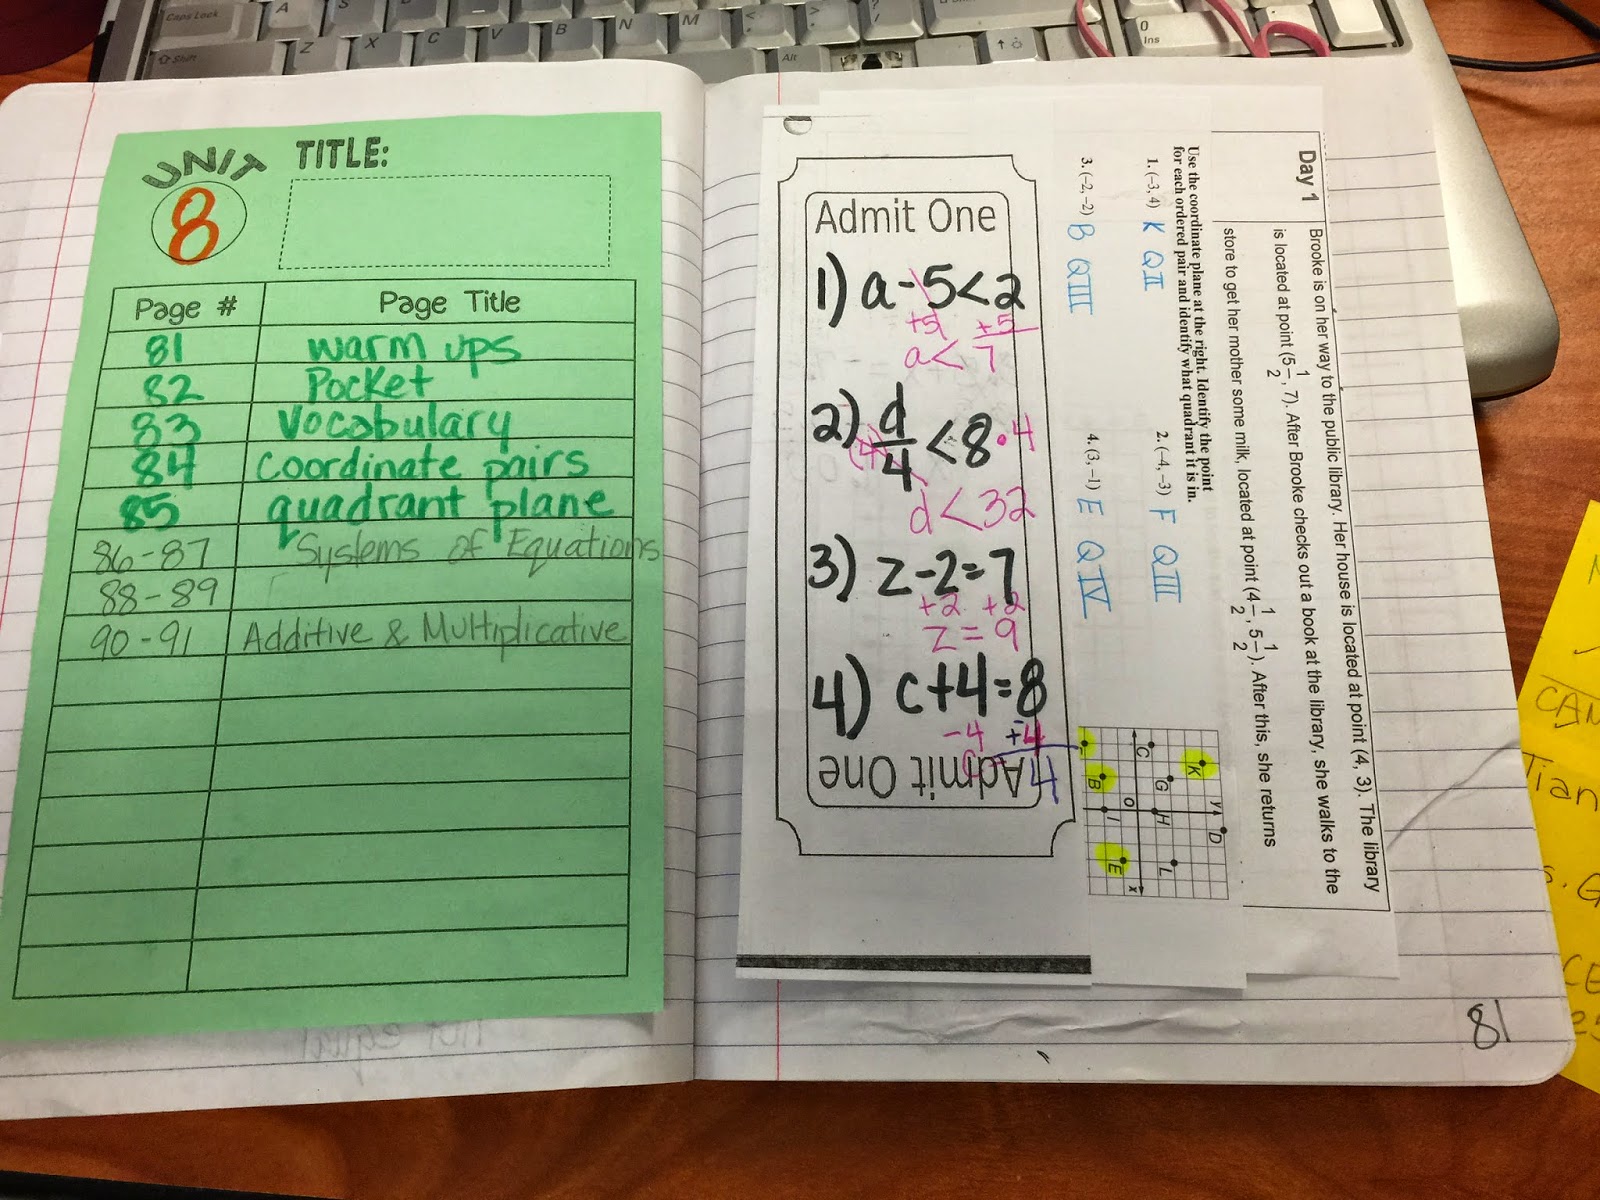 Caps Lock
A
S
Shift
Z
X
C
V
B
N
M
Alt
0
Ins
UNIT
8
TITLE:
Page # Page Title
81 warm ups
82 Pocket
83 Vocabulary
84 coordinate pairs
85 quadrant plane
86-87 Systems of Equations
88-89
90-91 Additive & Multiplicative
Admit One
1) a-5<2
+5 +5
a< 7
2) d/4 <8•4
d<32
3) z-2=7
+2 +2
z=9
4) c+4=8
-4 -4
4
Admit One
Day 1
Brooke is on her way to the public library. Her house is located at point (4, 3). The library
is located at point (5 1/2, 7). After Brooke checks out a book at the library, she walks to the
store to get her mother some milk, located at point (4 1/2, 5 1/2). After this, she returns
Use the coordinate plane at the right. Identify the point
for each ordered pair and identify what quadrant it is in.
1. (–3, 4) K QII
2. (–4, –3) F QIII
3. (–2, –2) B QIII
4. (3, –1) E QIV
y
D
K
G
H
L
C
O
x
B
I
E
81
CAN
Tian